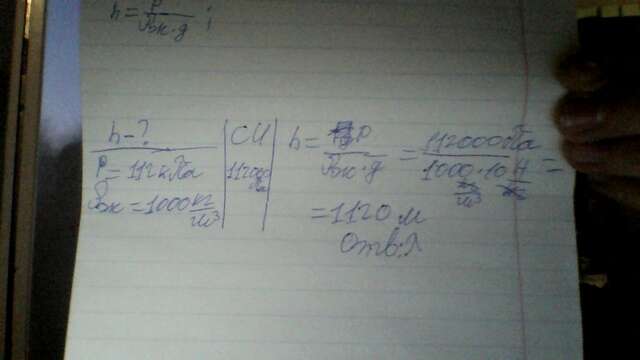 h = P / ρж·g ;
h - ?
P = 112 кПа
ρж = 1000 кг/м³
СИ
112000 Па
h = P / ρж·g = 112000 Па / 1000 кг/м³ · 10 Н/кг =
= 1120 м
Отв: